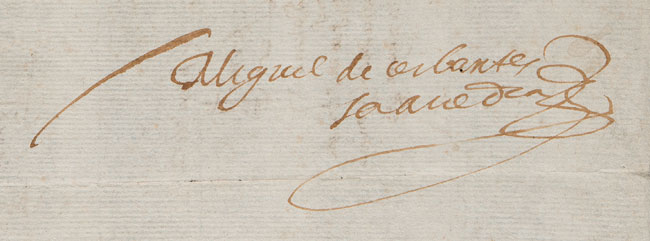 Miguel de cerbantes
saavedra